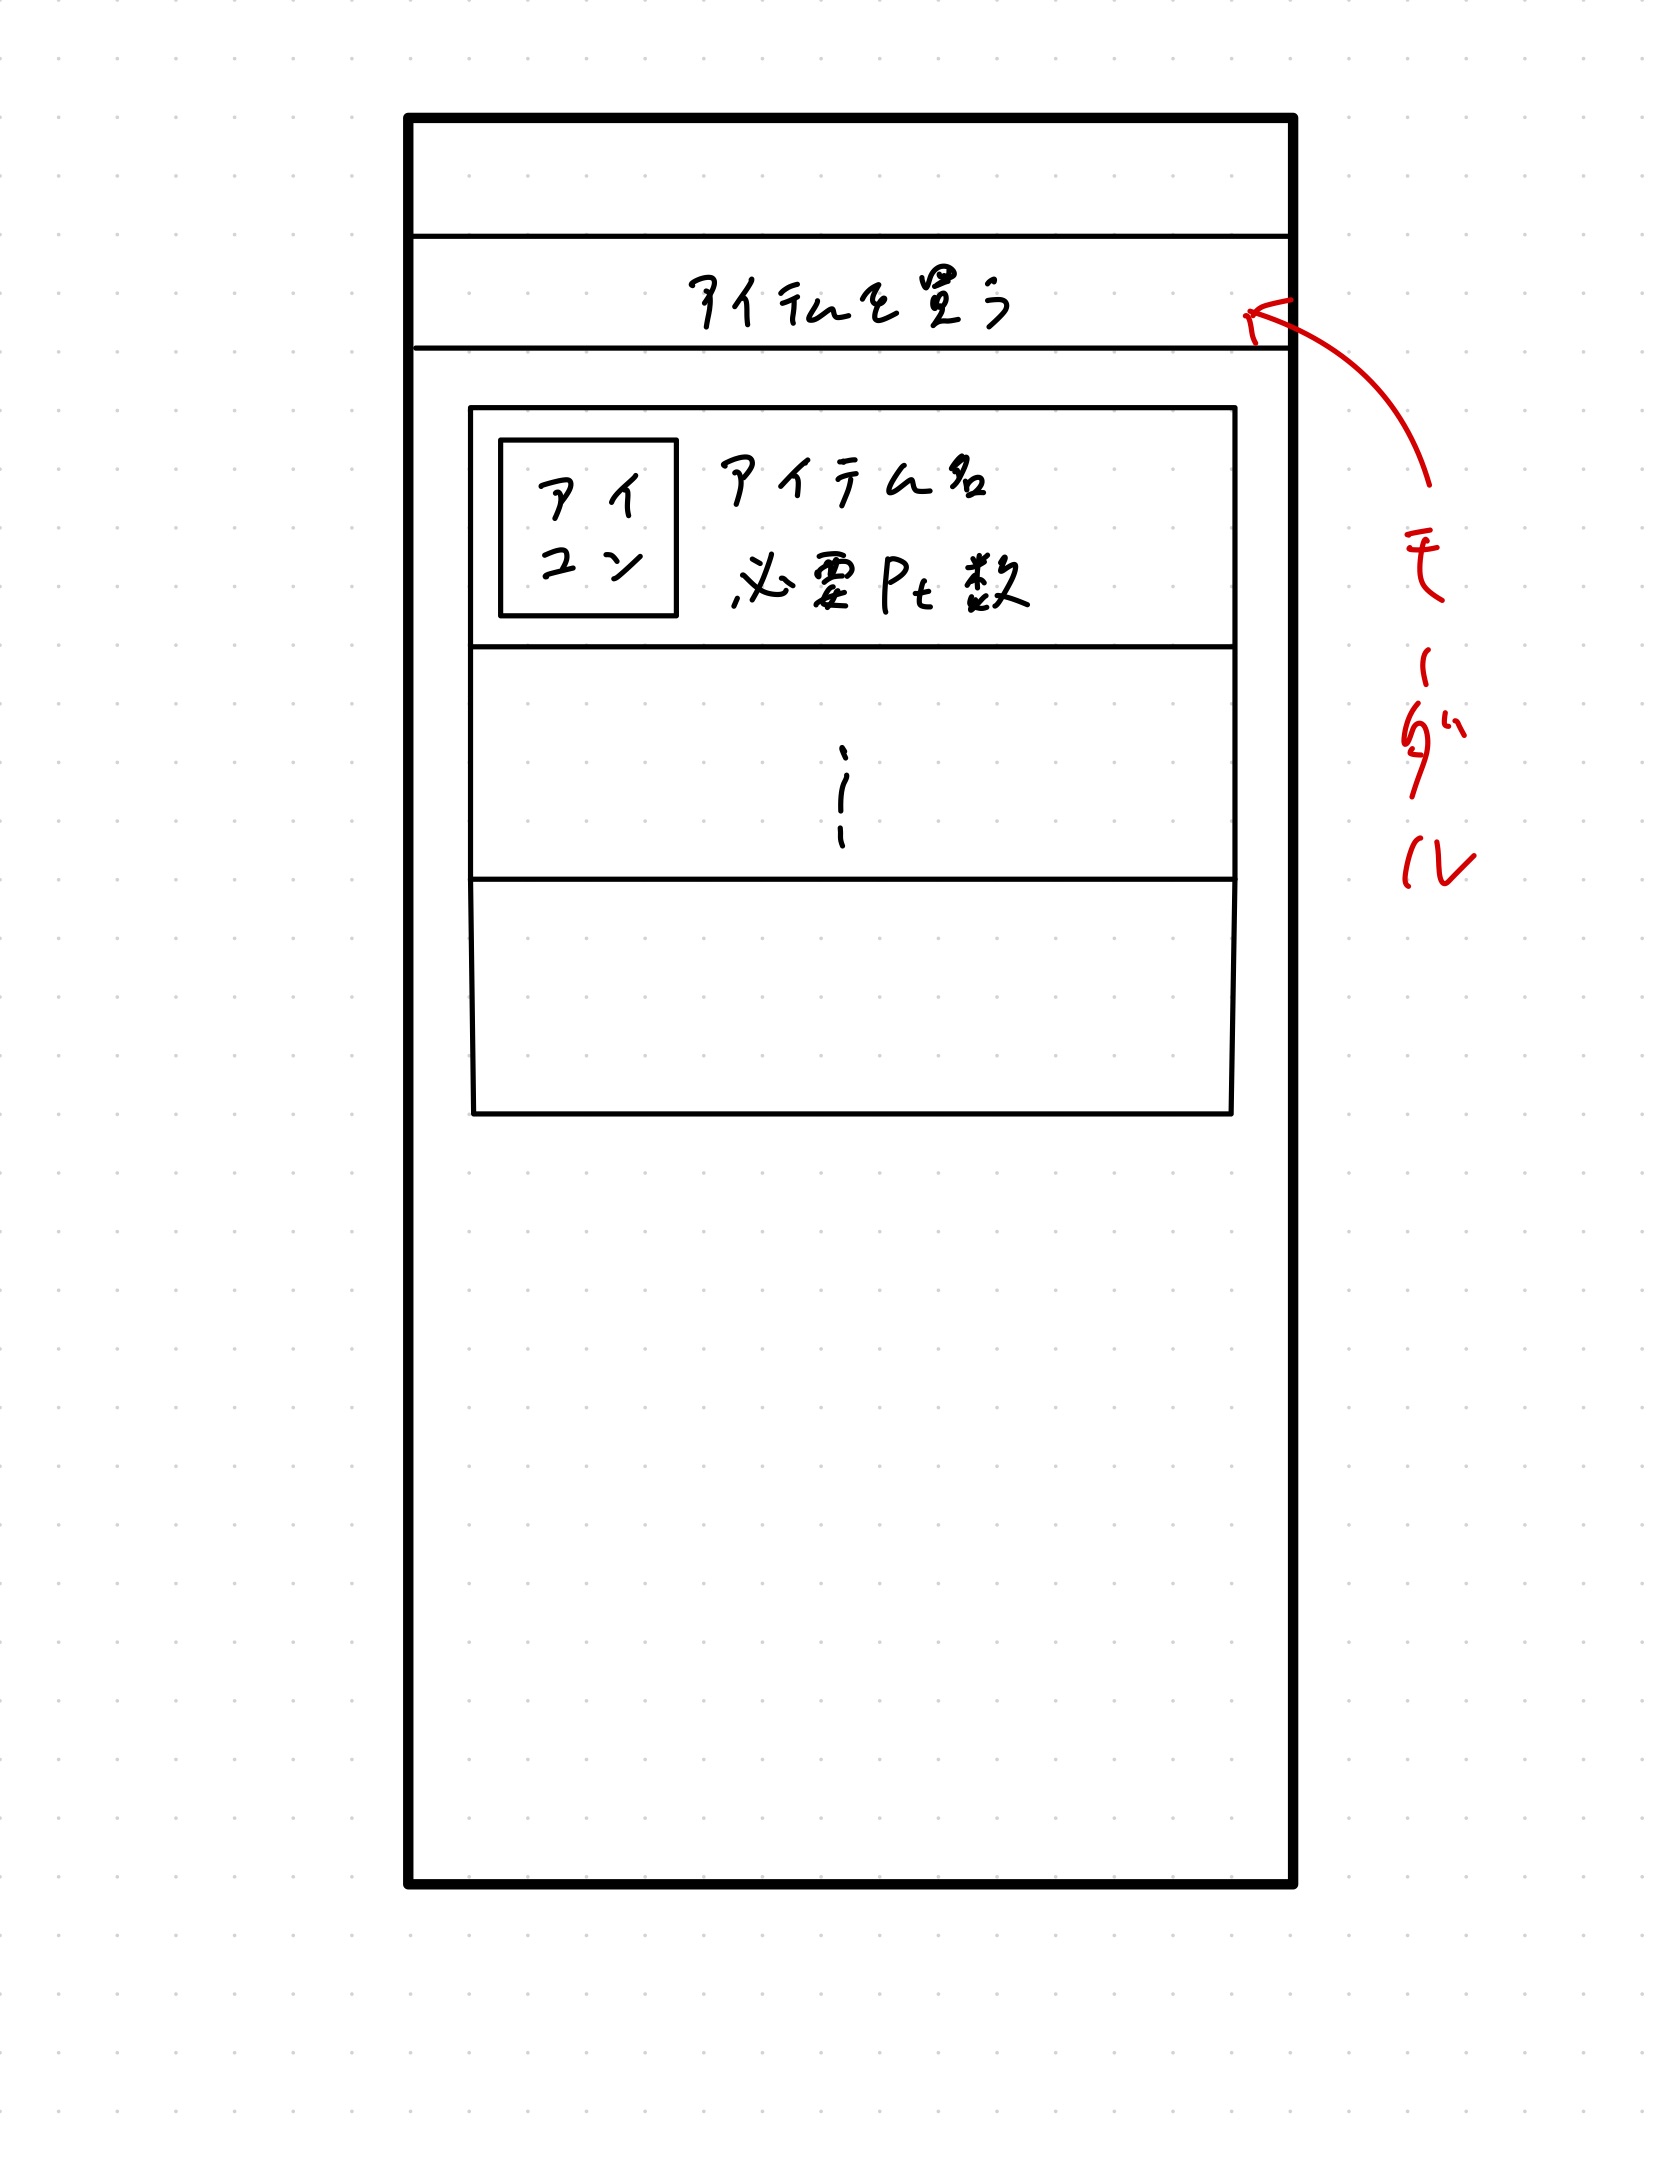 アイテムを買う
アイ
コン
アイテム名
必要Pt数
モーダル